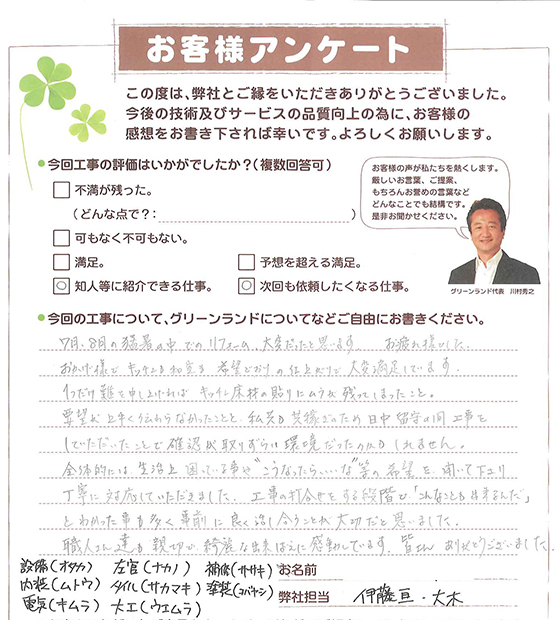 お客様アンケート
この度は、弊社とご縁をいただきありがとうございました。
今後の技術及びサービスの品質向上の為に、お客様の
感想をお書き下されば幸いです。よろしくお願いします。
●今回工事の評価はいかがでしたか？（複数回答可）
不満が残った。
（どんな点で？：　　　）
可もなく不可もない。
満足。
予想を超える満足。
○ 知人等に紹介できる仕事。
○ 次回も依頼したくなる仕事。
お客様の声が私たちを熱くします。
厳しいお言葉、ご提案、
もちろんお誉めの言葉など
どんなことでも結構です。
是非お聞かせください。
グリーンランド代表　川村秀之
●今回の工事について、グリーンランドについてなどご自由にお書きください。
7月、8月の猛暑の中でのリフォーム、大変だったと思います。お疲れ様でした。
おかげ様で キッチンも和室も 希望どおりの仕上がりで 大変満足しています。
1つだけ難を申し上げれば キッチン床材の貼りにムラが残ってしまったこと。
要望が上手く伝わらなかったことと 私共も共稼ぎのため 日中留守の間 工事を
していただいたことで 確認が取りずらい環境だったのかもしれません。
全体的には、生活上 困っている事や"こうなったらいいな"等の希望を聞いて下さり
丁寧に対応していただきました。工事の打合せをする段階で「こんなことも出来るんだ」
とわかった事も多く 事前に良く話し合うことが大切だと思いました。
職人さん達も親切で、綺麗な出来ばえに感動しています。皆さん ありがとうございました。
設備(オダカ)　左官(ナカノ)　補修(ササキ)
内装(ムトウ)　タイル(サカマキ)　塗装(コバヤシ)
電気(キムラ)　大工(ウエムラ)
お名前
弊社担当　伊藤亘・大木